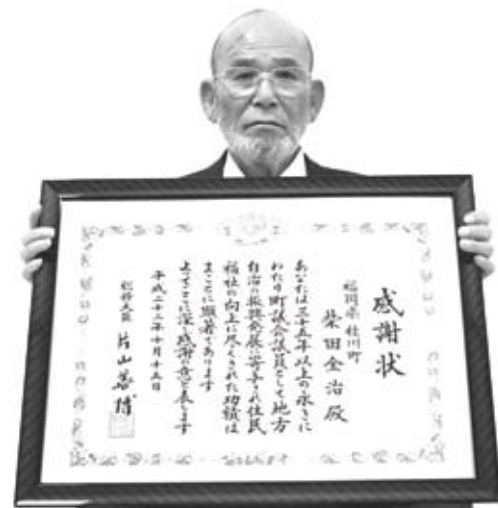 感謝状
福岡県桂川町
柴田金治殿
あなたは三十五年以上の永きに
わたり町議会議員として地方
自治の振興発展に寄与され住民
福祉の向上に尽くされた功績は
まことに顕著であります
よってここに深く感謝の意を表します
平成二十二年十月十五日
総務大臣 片山善博